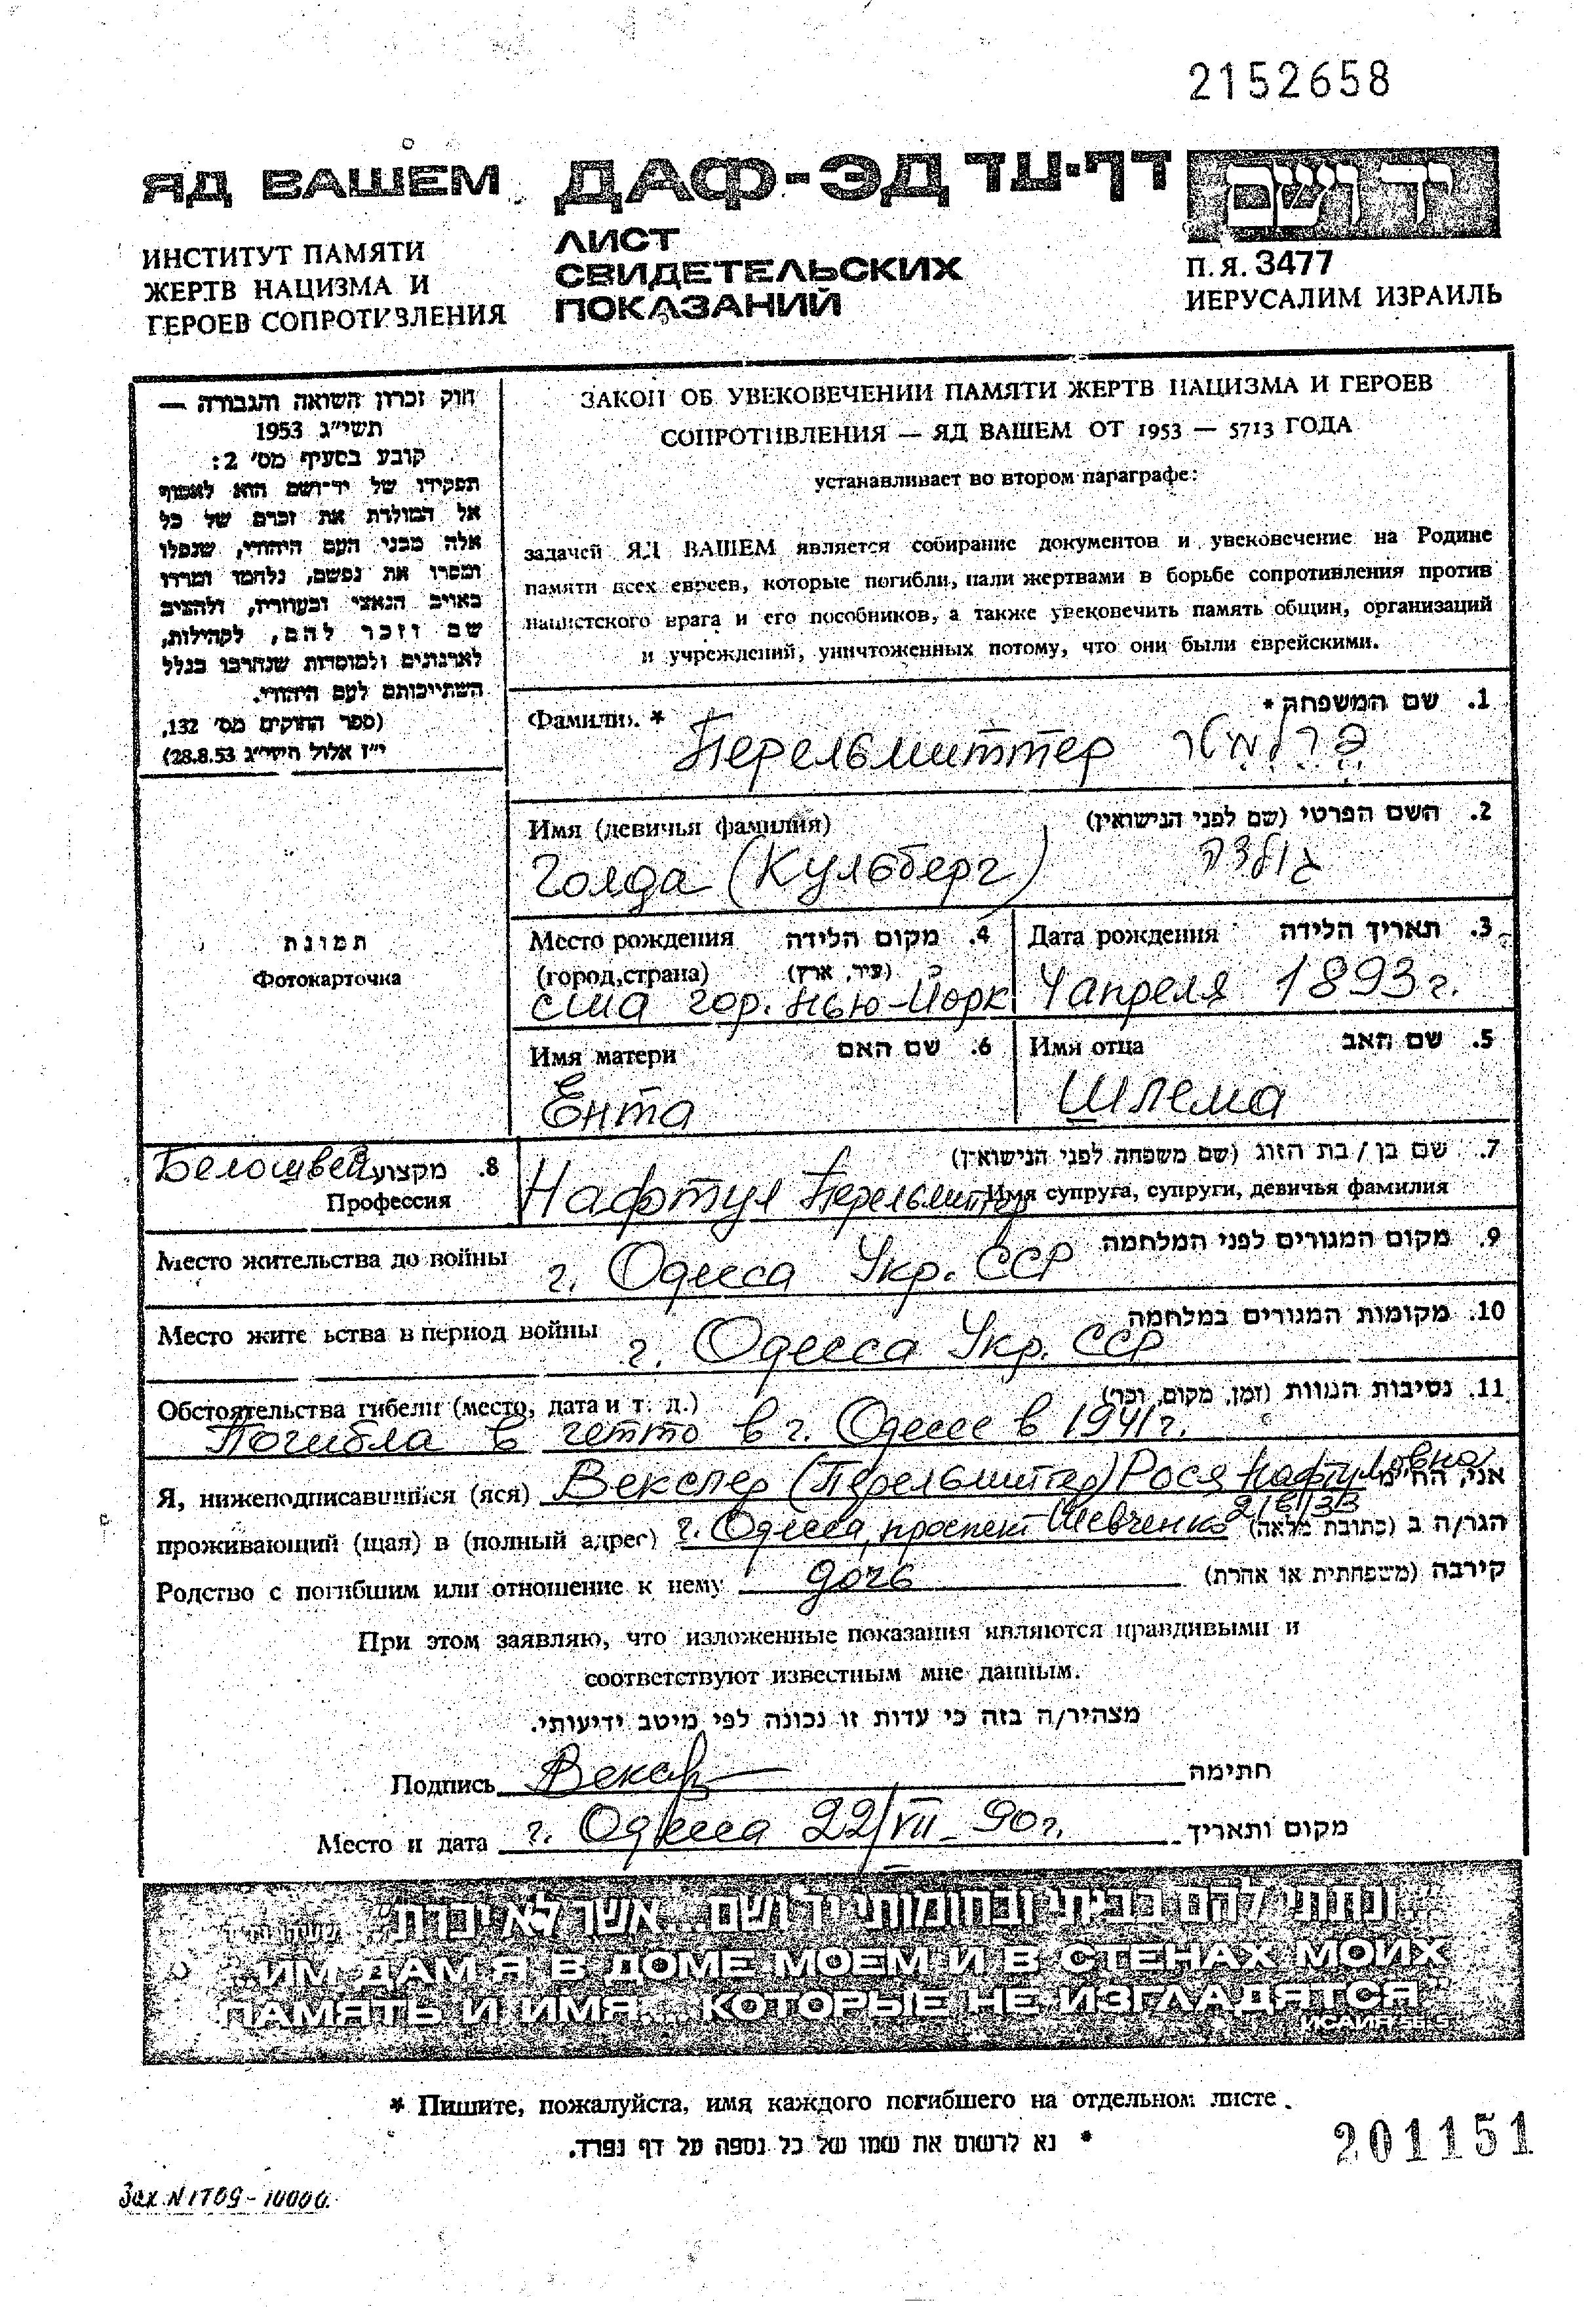 2152658
ЯД ВАШЕМ ДАФ-ЭД דף-עד יד ושם
ИНСТИТУТ ПАМЯТИ
ЖЕРТВ НАЦИЗМА И
ГЕРОЕВ СОПРОТИВЛЕНИЯ
ЛИСТ
СВИДЕТЕЛЬСКИХ
ПОКАЗАНИЙ
П.Я. 3477
ИЕРУСАЛИМ ИЗРАИЛЬ
חוק זכרון השואה והגבורה —
תשי"ג 1953
קובע בסעיף מס' 2:
תפקידו של יד-ושם הוא לאסוף
אל המולדת את זכרם של כל
אלה מבני העם היהודי, שנפלו
ומסרו את נפשם, נלחמו ומרדו
באויב הנאצי ובעוזריו, ולהציב
שם וזכר להם, לקהילות,
לארגונים ולמוסדות שנחרבו בגלל
השתייכותם לעם היהודי.
(ספר החוקים מס' 132,
י"ז אלול תשי"ג 28.8.53)
ЗАКОН ОБ УВЕКОВЕЧЕНИИ ПАМЯТИ ЖЕРТВ НАЦИЗМА И ГЕРОЕВ
СОПРОТИВЛЕНИЯ — ЯД ВАШЕМ ОТ 1953 — 5713 ГОДА
устанавливает во втором параграфе:
задачей ЯД ВАШЕМ является собирание документов и увековечение на Родине
памяти всех евреев, которые погибли, пали жертвами в борьбе сопротивления против
нацистского врага и его пособников, а также увековечить память общин, организаций
и учреждений, уничтоженных потому, что они были еврейскими.
Фамилия * 1. שם המשפחה *
Перельмиттер פרלמיטר
Имя (девичья фамилия) 2. השם הפרטי (שם לפני הנישואין)
Голда (Кульберг) גולדה
Место рождения 4. מקום הלידה
(город,страна) (עיר, ארץ)
США гор. Нью-Йорк
Дата рождения 3. תאריך הלידה
4 апреля 1893 г.
Имя матери 6. שם האם
Ента
Имя отца 5. שם האב
Шлема
תמונה
Фотокарточка
Белошвейка 8. מקצוע
Профессия
7. שם בן / בת הזוג (שם משפחה לפני הנישואין)
Нафтул Перельмиттер Имя супруга, супруги, девичья фамилия
Место жительства до войны г. Одесса Укр. ССР 9. מקום המגורים לפני המלחמה
Место жите ьства в период войны г. Одесса Укр. ССР 10. מקומות המגורים במלחמה
Обстоятельства гибели (место, дата и т. д.) 11. נסיבות המוות (זמן, מקום, וכו')
Погибла в гетто в г. Одессе в 1941 г.
Я, нижеподписавшийся (яся) Векслер (Перельмиттер) Рося Нафтуловна אני, הח"מ
проживающий (щая) в (полный адрес) г. Одесса, проспект Шевченко 2/6/33 הגר/ה ב (כתובת מלאה)
Родство с погибшим или отношение к нему дочь קירבה (משפחתית או אחרת)
При этом заявляю, что изложенные показания являются правдивыми и
соответствуют известным мне данным.
מצהיר/ה בזה כי עדות זו נכונה לפי מיטב ידיעותי.
Подпись חתימה
Место и дата г. Одесса 22/VII-90 г. מקום ותאריך
"ונתתי להם בביתי ובחומותי יד ושם... אשר לא יכרת"
"ИМ ДАМ Я В ДОМЕ МОЕМ И В СТЕНАХ МОИХ
ПАМЯТЬ И ИМЯ... КОТОРЫЕ НЕ ИЗГЛАДЯТСЯ"
ИСАИЯ 56, 5
* Пишите, пожалуйста, имя каждого погибшего на отдельном листе.
* נא לרשום את שמו של כל נספה על דף נפרד.
201151
Зак. N 1709-10000.